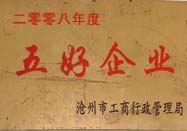 二零零八年度
五好企业
沧州市工商行政管理局